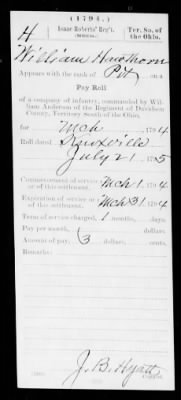 (1794.)
H Isaac Roberts' Reg't (Militia). Ter. So. of the Ohio.
William Hawthorn
Appears with the rank of Pvt on a
Pay Roll
of a company of infantry, commanded by Wil-
liam Anderson of the Regiment of Davidson
County, Territory South of the Ohio,
for Mch, 1794
Roll dated Knoxville
July 21, 1795
Commencement of service or of this settlement. Mch 1, 1794
Expiration of service or of this settlement. Mch 31, 1794
Term of service charged, 1 months, days.
Pay per month, dollars, cents.
Amount of pay, 3 dollars, cents.
Remarks:
J. B. Hyatt
Copyist.